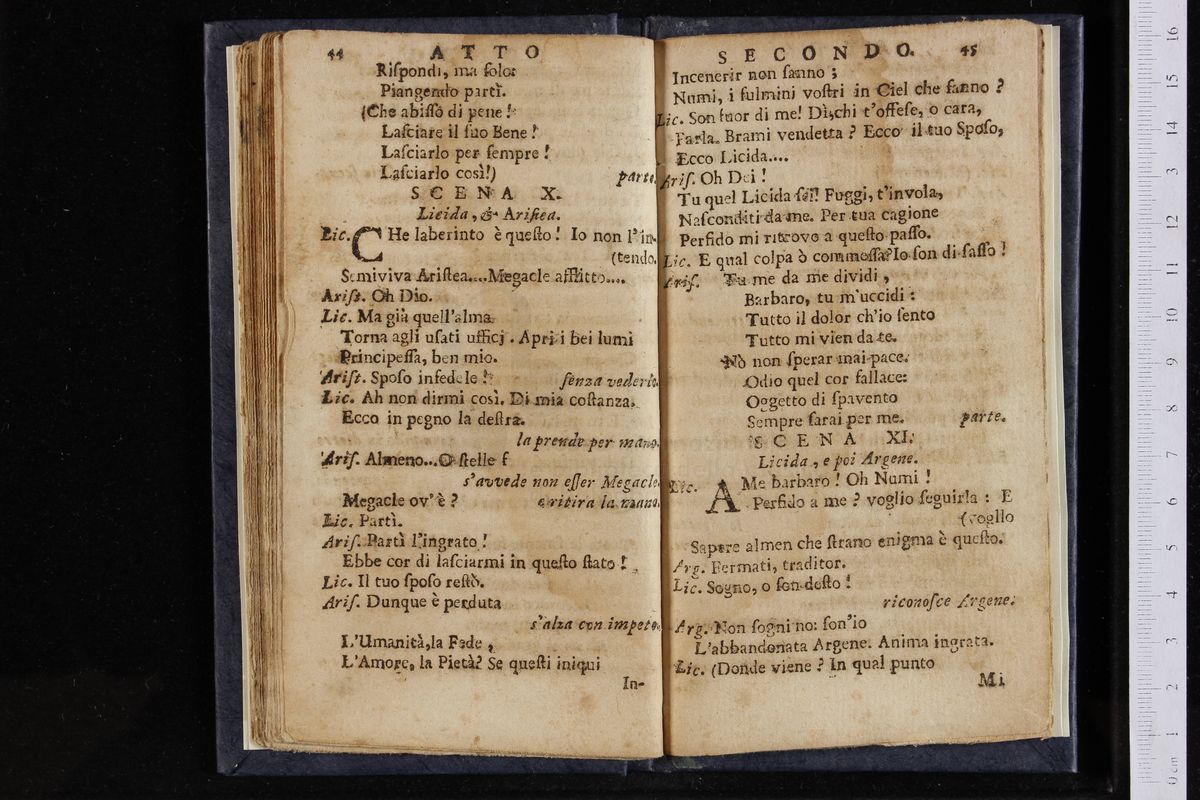 44 ATTO
Riſpondi, ma ſolo:
Piangendo partì.
(Che abiſſo di pene!
Laſciare il ſuo Bene!
Laſciarlo per ſempre!
Laſciarlo così!) parte.
SCENA X.
Licida, & Ariſtea.
Lic. CHe laberinto è queſto! Io non l'in-
(tendo.
Semiviva Ariſtea....Megacle afflitto....
Ariſt. Oh Dio.
Lic. Ma già quell'alma
Torna agli uſati ufficj. Apri i bei lumi
Principeſſa, ben mio.
Ariſt. Spoſo infedele! ſenza vederlo.
Lic. Ah non dirmi così. Di mia coſtanza.
Ecco in pegno la deſtra.
la prende per mano.
Ariſ. Almeno...O ſtelle ſ
s'avvede non eſſer Megacle.
Megacle ov'è? e ritira la mano.
Lic. Partì.
Ariſ. Partì l'ingrato!
Ebbe cor di laſciarmi in queſto ſtato!
Lic. Il tuo ſpoſo reſtò.
Ariſ. Dunque è perduta
s'alza con impeto.
L'Umanità, la Fede,
L'Amore, la Pietà? Se queſti iniqui
In-
SECONDO. 45
Incenerir non ſanno;
Numi, i fulmini voſtri in Ciel che fanno?
Lic. Son fuor di me! Dì, chi t'offeſe, o cara,
Parla. Brami vendetta? Ecco il tuo Spoſo,
Ecco Licida....
Ariſ. Oh Dei!
Tu quel Licida ſei! Fuggi, t'invola,
Naſconditi da me. Per tua cagione
Perfido mi ritrovo a queſto paſſo.
Lic. E qual colpa ò commeſſa? Io ſon di ſaſſo!
Ariſ. Tu me da me dividi,
Barbaro, tu m'uccidi:
Tutto il dolor ch'io ſento
Tutto mi vien da te.
Nò non ſperar mai pace.
Odio quel cor fallace:
Oggetto di ſpavento
Sempre ſarai per me. parte.
SCENA XI.
Licida, e poi Argene.
Lic. AMe barbaro! Oh Numi!
Perfido a me? voglio ſeguirla: E
(voglio
Sapere almen che ſtrano enigma è queſto.
Arg. Fermati, traditor.
Lic. Sogno, o ſon deſto!
riconoſce Argene.
Arg. Non ſogni no: ſon'io
L'abbandonata Argene. Anima ingrata.
Lic. (Donde viene? In qual punto
Mi
0cm 1 2 3 4 5 6 7 8 9 10 11 12 13 14 15 16